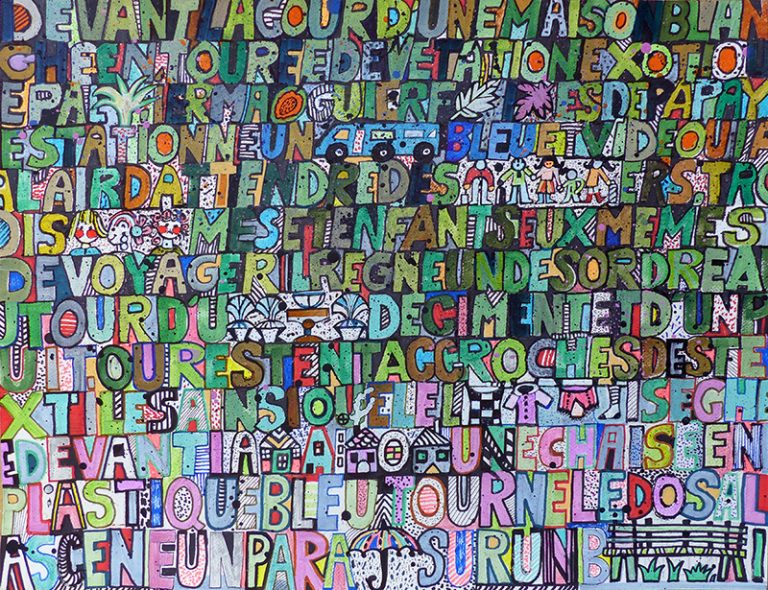 DEVANTLACOURD'UNEMAISONBLAN
CHEENTOUREEDEVETATIONEXOTIQ
ESDEPAPAY
ESTATIONNEUN BLEUETVIDEQUIA
LAIRDATTENDREDES ERS,TRO
OIS MESETENFANTSEUXMEMES
DEVOYAGERILREGNEUNDESORDREA
UTOURD'U DECIMENTETD'UNP
UIT.OURESTENTACCROCHESDESTE
XTILESAINSIQUELEL ISEGH
EDEVANTLA UNECHAISEEN
PLASTIQUEBLEUTOURNELEDOSAL
ASCENEUNPARA SURUNB